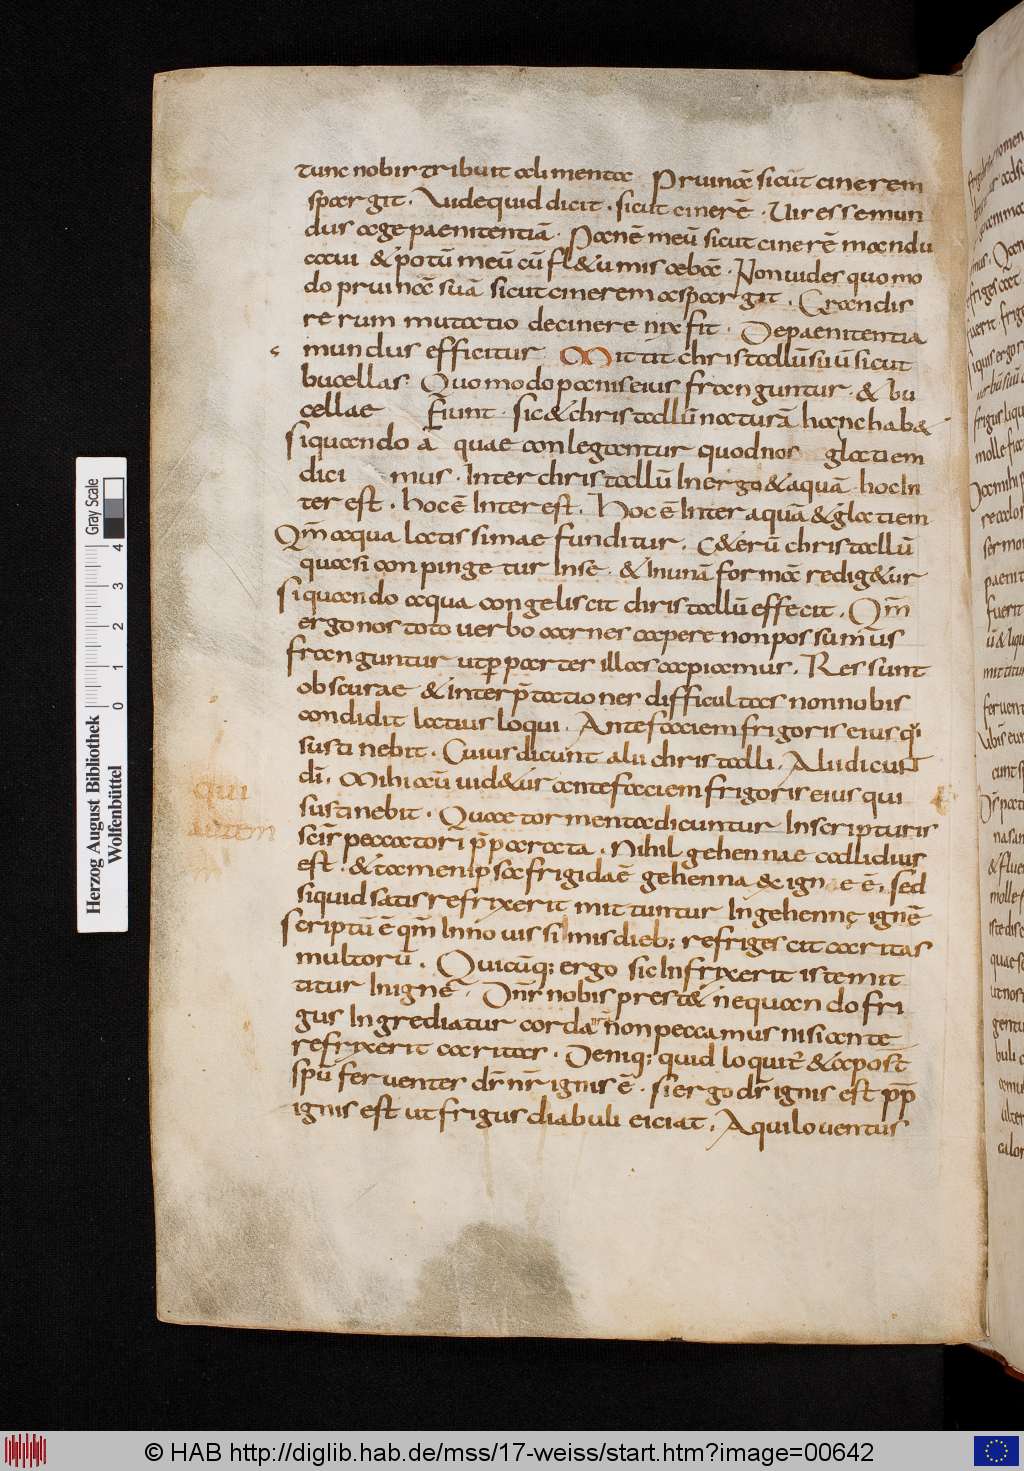 tunc nobis tribuit alimenta Pruinā sicut cinerem
spargit. Vide quid dicit. sicut cinerē. Vis esse mun
dus age paenitentiā. Panē meū sicut cinerē mandu
caui & potū meū cū fl&u miscebā. Non uides quomo
do pruinā suā sicut cinerem aspargit. Grandis
rerum mutatio de cinere nix fit. De paenitentia
mundus efficitur Mittit christallū suū sicut
bucellas Quomodo panis eius franguntur. & bu
cellae Fiunt. sic & christallū naturā hanc hab&
siquando a quae conlegantur quod nos glatiem
dici mus. Inter christallū In ergo & aquā hoc In
ter est. hoc ē Inter est. Hoc ē Inter aquā & glatiem
Qm̄ aqua latissimae funditur. C&erū christallū
quasi conpingetur In sē. & In unā formā redig&ur
siquando aqua congeliscit christallū effecit. Qm̄
ergo nos toto uerbo carnes capere non possumus
franguntur ut per partes illas capiamus. Res sunt
obscurae & interp̄tationes difficultas non nobis
condidit latius loqui. Ante faciem frigoris eius q̄s
sustinebit. Cuius dicunt alii christalli. Alii dicunt
dī. Mihi aū uid&ur ante faciem frigoris eius qui
sustinebit. Quae tormenta dicuntur In scripturis
scīs peccatori p̄parata. Nihil gehennae callidius
est. & tamen ipsa frigida ē gehenna & ign e ē. sed
siquid satis refrixerit mittuntur In gehennę ignē
scriptū ē qm̄ In nouissimis dieb; refrigescit caritas
multorū. Quicūq; ergo sic Infrixerit iste mit
titur In ignē. Dn̄s nobis prest& ne quando fri
gus Ingrediatur corda nr̄a non peccamus nisi ante
refrixerit caritas. Deniq; quid loquit̄ & apost
spū feruentes ds̄ nr̄ ignis ē. si ergo ds̄ ignis est pp̄
ignis est ut frigus diabuli eiciat. Aquilo uentus
qui
autem
Gray Scale
0 1 2 3 4
Herzog August Bibliothek
Wolfenbüttel
© HAB http://diglib.hab.de/mss/17-weiss/start.htm?image=00642